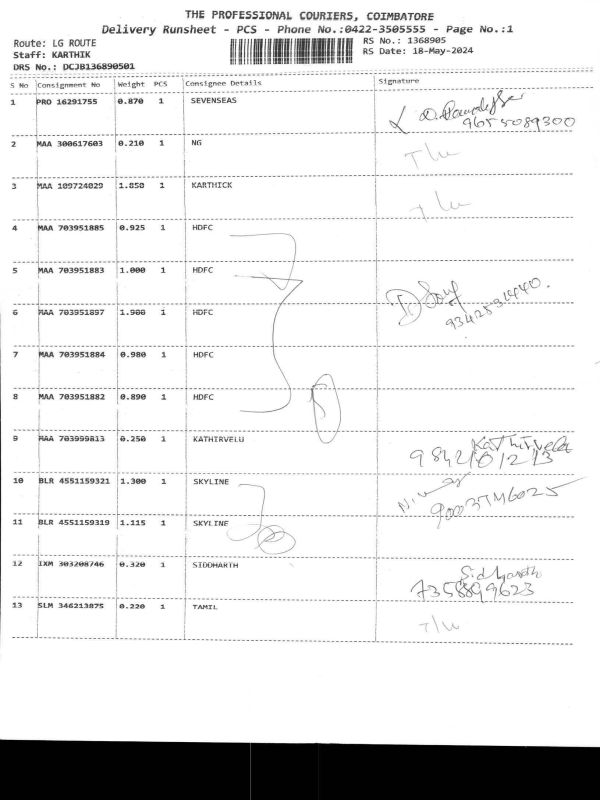 THE PROFESSIONAL COURIERS, COIMBATORE
Delivery Runsheet - PCS - Phone No.:0422-3505555 - Page No.:1
Route: LG ROUTE RS No.: 1368905
Staff: KARTHIK RS Date: 18-May-2024
DRS No.: DCJB136890501
S No Consignment No Weight PCS Consignee Details Signature
1 PRO 16291755 0.870 1 SEVENSEAS
9655089300
2 MAA 300617603 0.210 1 NG
3 MAA 109724029 1.850 1 KARTHICK
4 MAA 703951885 0.925 1 HDFC
5 MAA 703951883 1.000 1 HDFC
6 MAA 703951897 1.900 1 HDFC
7 MAA 703951884 0.980 1 HDFC
8 MAA 703951882 0.890 1 HDFC
9 MAA 703999813 0.250 1 KATHIRVELU Kathirvelu
10 BLR 4551159321 1.300 1 SKYLINE
11 BLR 4551159319 1.115 1 SKYLINE
12 IXM 303208746 0.320 1 SIDDHARTH Siddharth
7358899623
13 SLM 346213875 0.220 1 TAMIL